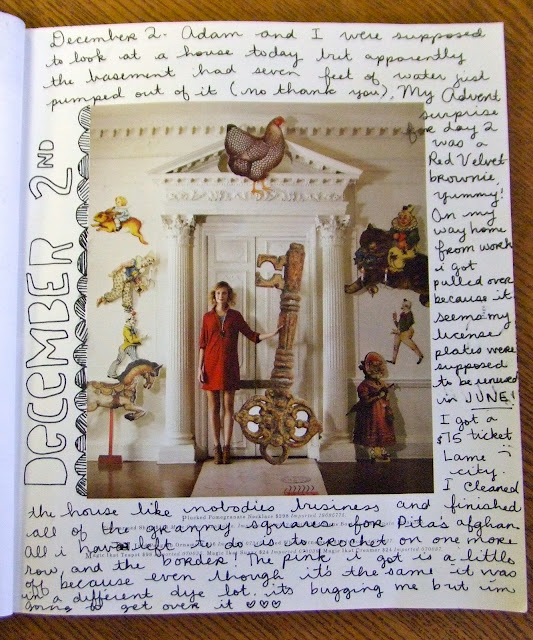 DECEMBER 2ND
December 2. Adam and I were supposed
to look at a house today but apparently
the basement had seven feet of water just
pumped out of it (no thank you). My Advent
surprise
for day 2
was a
Red Velvet
brownie,
yummy!
On my
way home
from work
i got
pulled over
because it
seems my
license
plates were
supposed
to be renewed
in JUNE!
I got a
$15 ticket
Lame
city.
I cleaned
the house like nobodies business and finished
all of the granny squares for Pita's afghan.
all i have left to do is to crochet on one more
row and the border! The pink i got is a little
off because even though it's the same it was
in a different dye lot. its bugging me but i'm
going to get over it ♡♡♡
Plucked Pomegranate Necklace $298 Imported